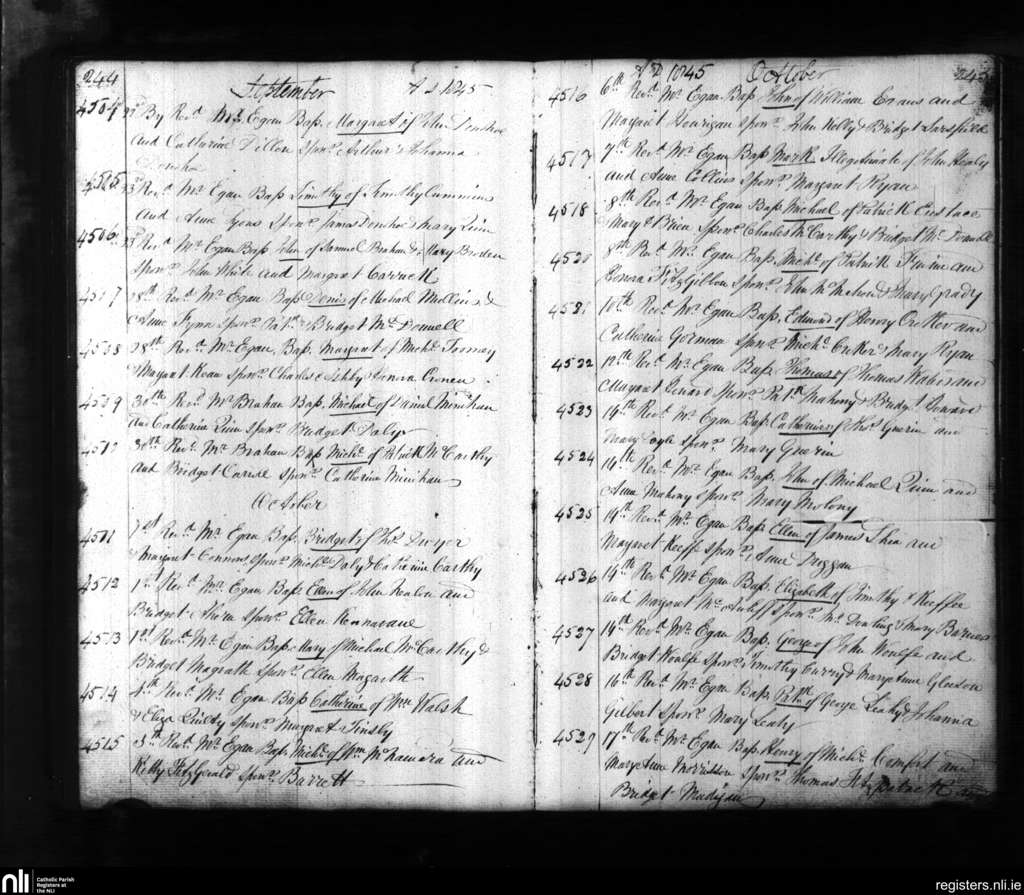 244
September A D 1845
4504 By Revd Mr Egan Bap. Margaret of John Donohoe
and Catharine Dillon Sponr Arthur & Johanna
Donohoe
4505 Revd Mr Egan Bap Timothy of Timothy Cummins
and Anne Lyons Sponr James Donohoe & Mary Quin
4506 Revd Mr Egan Bap John of Samuel Braham & Mary Broden
Sponr John White and Margaret Carrick
28th Revd Mr Egan Bap Denis of Michael Mullins &
Anne Fynn Sponr Patk & Bridget McDonnell
4508 28th Revd Mr Egan Bap. Margaret of Michl
Margaret Kean Sponr Charles
4509 30th Revd Mr Braham Bap. Michael of Daniel Minihan
and Catharine Quin Sponr Bridget Daly
30th Revd Mr Braham Bap Michl of Patrick McCarthy
and Bridget Sponr Catharine Minihan
October
4511 1st Revd Mr Egan Bap. Bridget of Thos Dwyer
& Margaret Connors Sponr Michl Daly & Catharine Carthy
4512 1st Revd Mr Egan Bap Ellen of John and
Bridget Ahern Sponr Ellen
4513 1st Revd Mr Egan Bap. Mary of Michael McCarthy &
Bridget Magrath Sponr Ellen Magrath
4514 Revd Mr Egan Bap Catharine of Wm Walsh
& Eliza Quilty Sponr Margaret Tinsly
4515 5th Revd Mr Egan Bap. Michl of Wm McNamara and
Kitty FitzGerald Sponr Barrett
A D 1845 October 245
4516 6th Revd Mr Egan Bap John of William Evans and
Margaret Sponr John Kelly & Bridget Sarsfield
4517 7th Revd Mr Egan Bap Mark Illegitimate of John Healy
and Anne Collins Sponr Margaret Ryan
4518 8th Revd Mr Egan Bap. Michael of Patrick Eustace
Mary O Brien Sponr Charles McCarthy & Bridget McDonnell
4520 8th Revd Mr Egan Bap. Michl of Patrick and
Honora FitzGibbon Sponr John & Mary Grady
10th Revd Mr Egan Bap. Edmond of Henry Croker and
Catharine Gorman Sponr Michl Croker & Mary Ryan
4522 12th Revd Mr Egan Bap Thomas of Thomas and
Margaret Sponr Patk Mahony & Bridget
4523 14th Revd Mr Egan Bap. Catharine of Thos Guerin and
Mary Sponr Mary Guerin
4524 14th Revd Mr Egan Bap. John of Michael Quin and
Anne Mahony Sponr Mary Molony
4525 14th Revd Mr Egan Bap Ellen of James Shea and
Margaret Keeffe Sponr Anne Duggan
4526 14th Revd Mr Egan Bap. Elizabeth of Timothy O Keeffe
and Margaret McAuliff Sponr & Mary Barnes
4527 14th Revd Mr Egan Bap. George of John Woulfe and
Bridget Woulfe Sponr Timothy Curry & Mary Anne Gleeson
4528 16th Revd Mr Egan Bap Patk of George Leahy & Johanna
Gilbert Sponr Mary Leahy
4529 17th Revd Mr Egan Bap Henry of Michl Comfort and
Mary Anne Morrisson Sponr Thomas Fitzpatrick and
Bridget Madigan
nli
Catholic Parish
Registers at
the NLI
registers.nli.ie